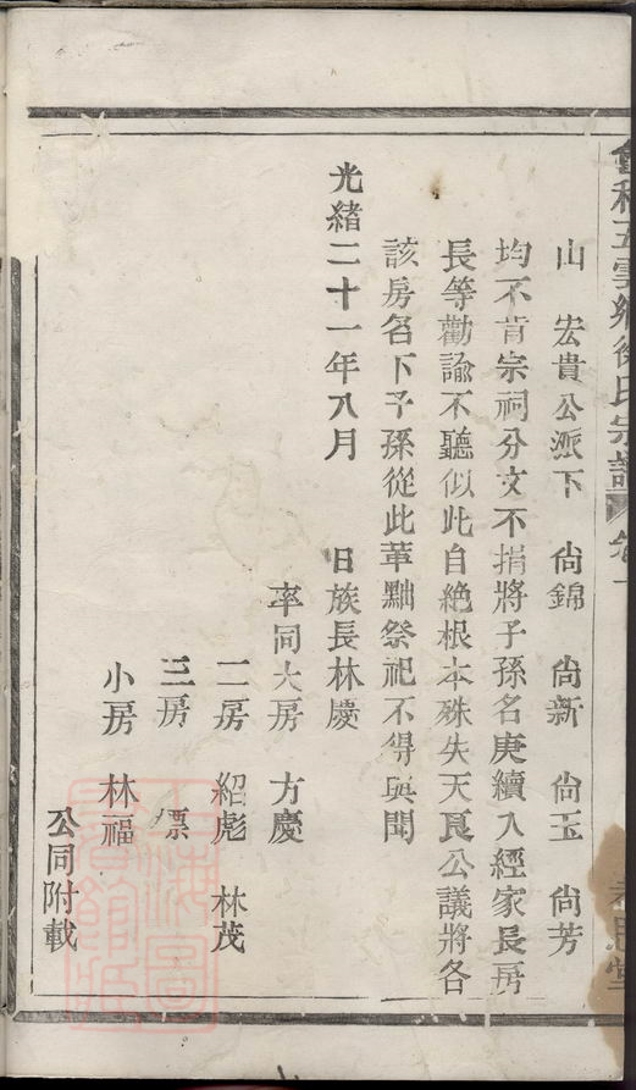 山　宏貴公派下　尙錦　尙新　尙玉　尙芳
均不肯宗祠分文不捐將子孫名庚續入經家長房
長等勸諭不聽似此自絶根本殊失天良公議將各
該房名下子孫從此革黜祭祀不得與聞
光緒二十一年八月　　日族長林慶
率同大房　方慶
二房　紹彪　林茂
三房　標
小房　林福
公同附載